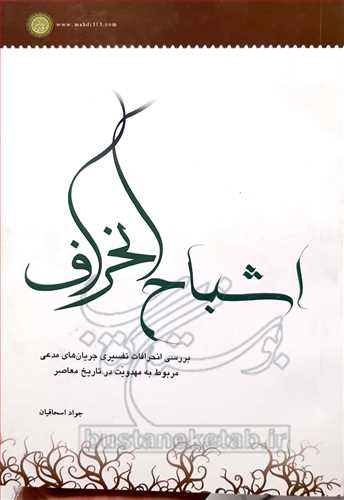 www.mahdi313.com
اشباح انحراف
بررسی انحرافات تفسیری جریان‌های مدعی
مربوط به مهدویت در تاریخ معاصر
جواد اسحاقیان
بوستان کتاب
bustaneketab.ir